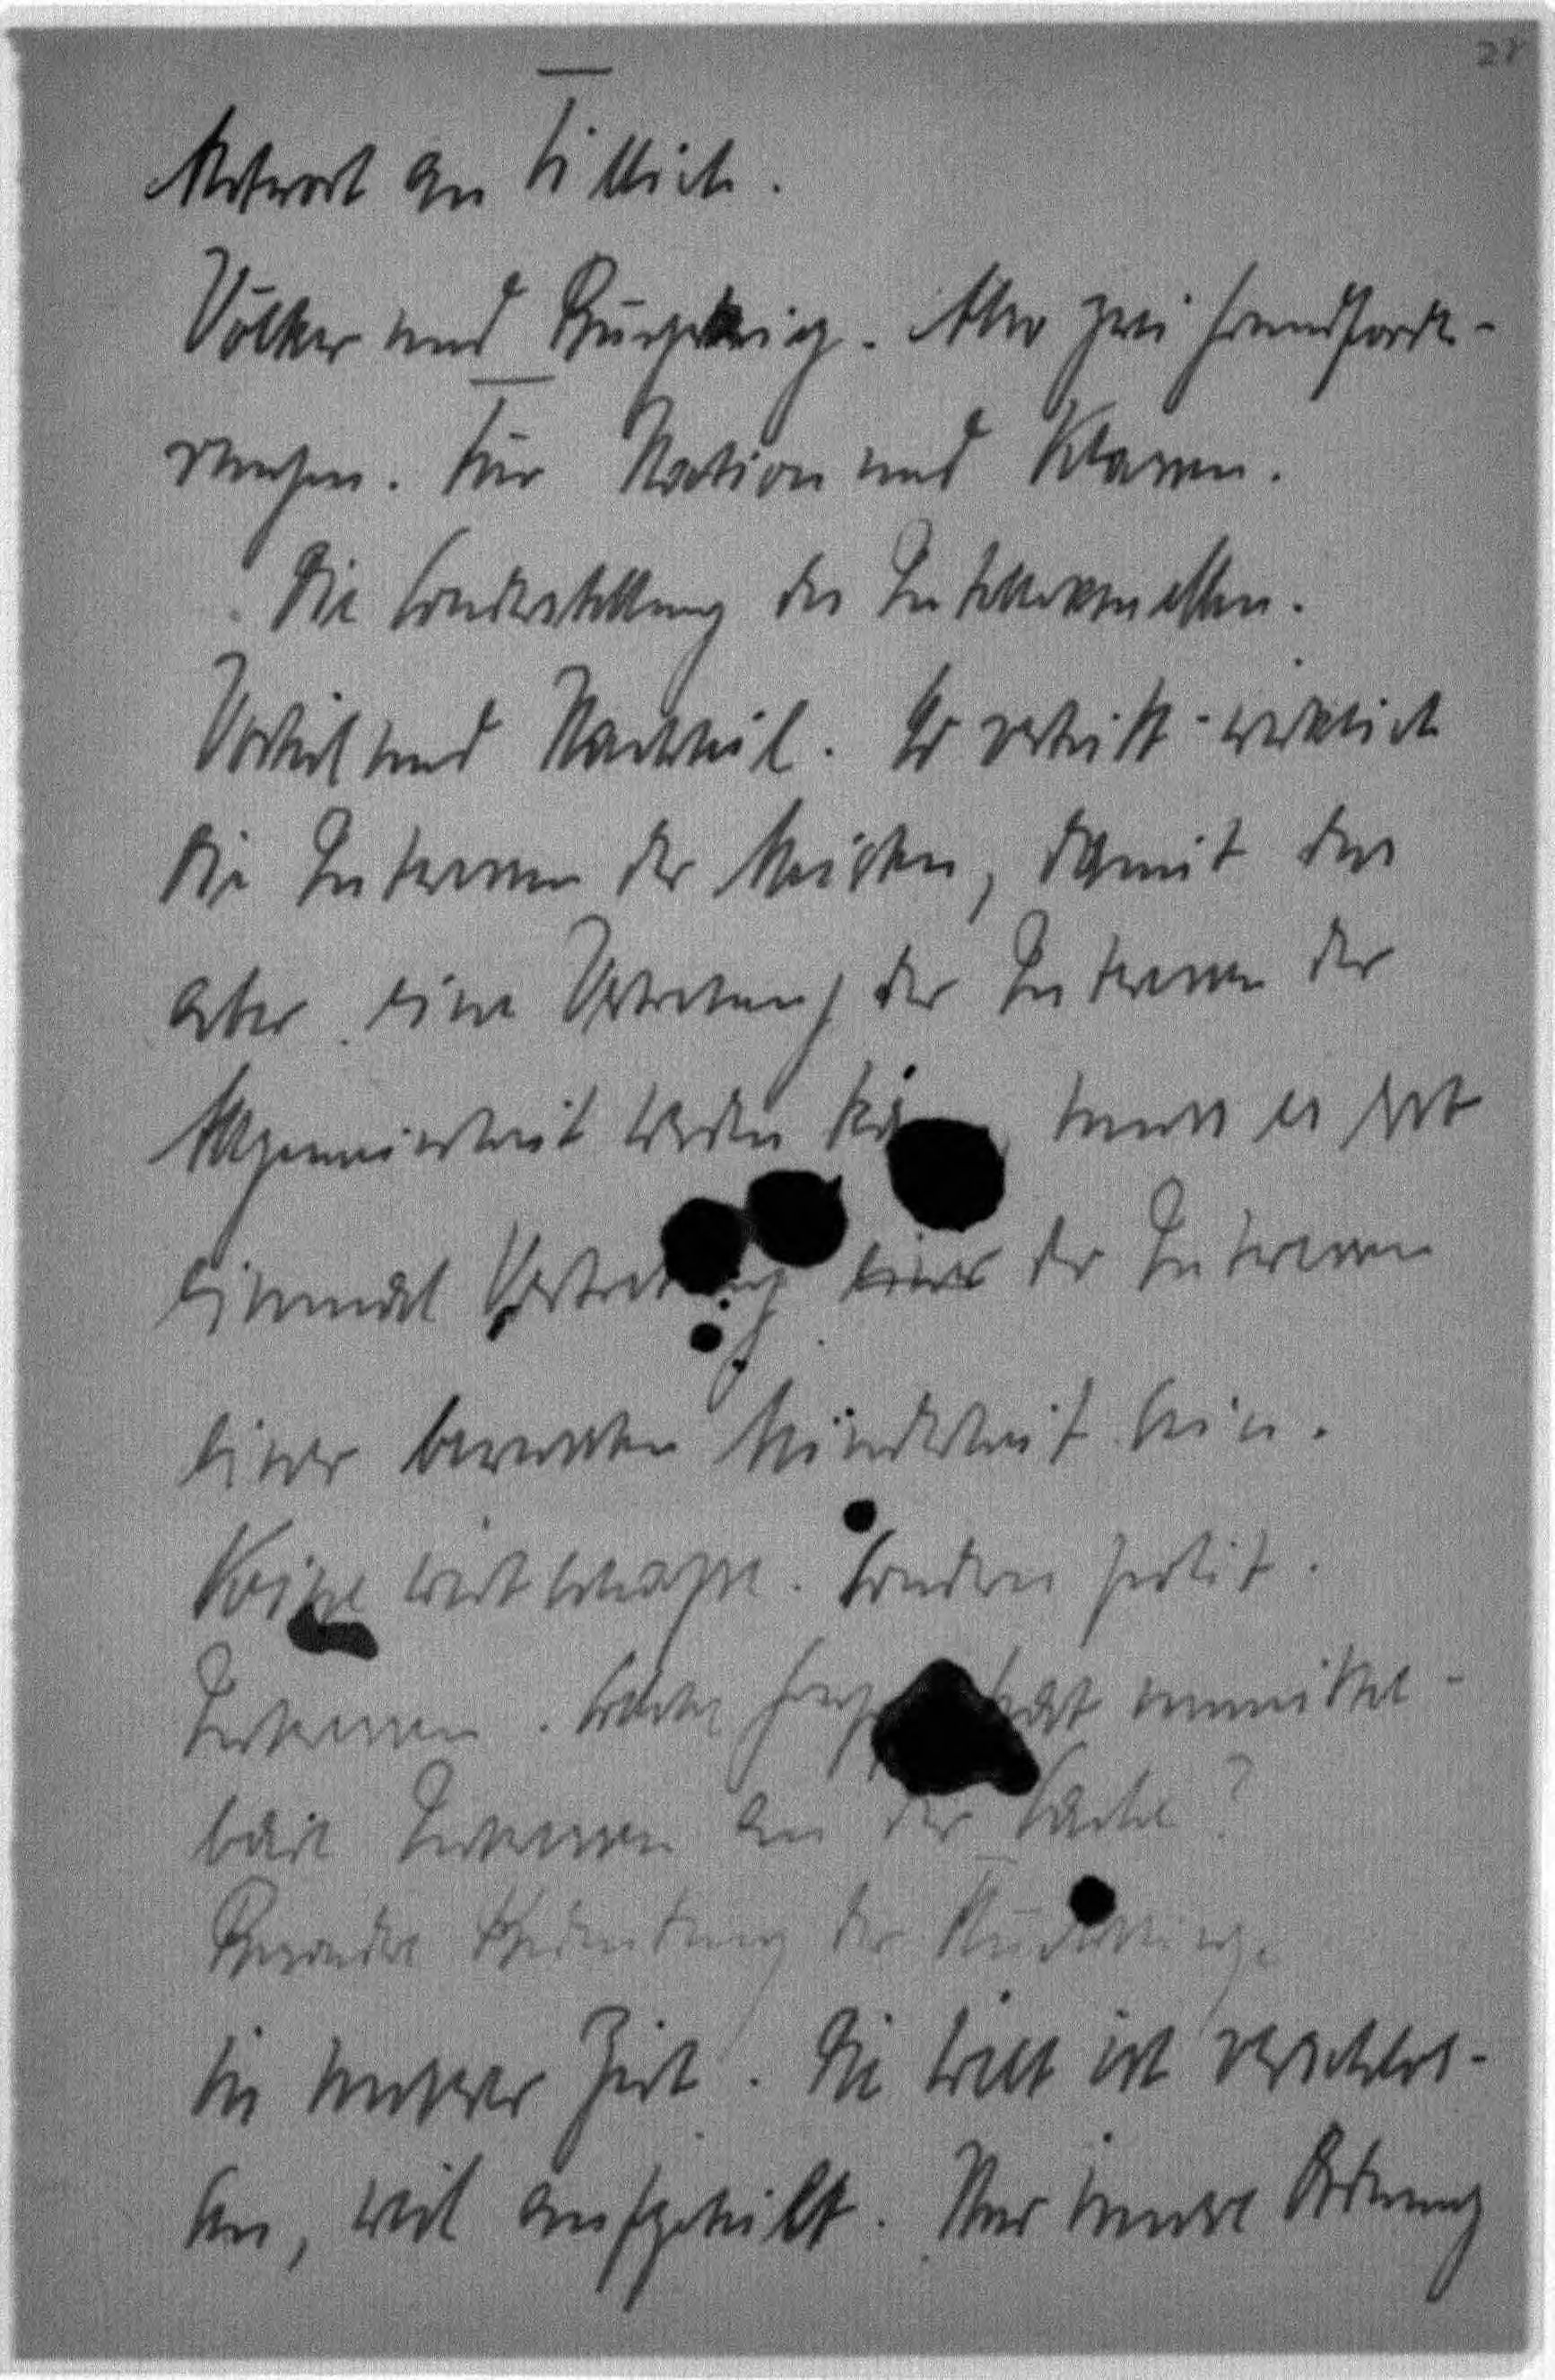 28
Antwort an Tillich.
Völker und Bürgerkrieg. Also zwei Grundforde-
rungen. Für Nation und Klassen.
Die Sonderstellung des Intellektuellen.
Vorteil und Nachteil. Er vertritt wirklich
die Interessen der Meisten, damit das
aber eine Vertretung der Interessen der
Allgemeinheit werden kann, muss es erst
einmal Vertretung einer der Interessen
einer bewussten Minderheit sein.
Keine wirtschaftl. Sondern geistig.
Interessen. Welche Gruppe hat unmittel-
bare Interessen an der Sache?
Besondere Bedeutung der
in unserer Zeit. Die Welt ist verschlos-
sen, weil aufgeteilt. Nur innere Ordnung